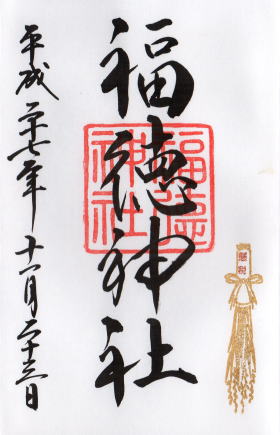 懸税
福徳神社
福徳
神社
平成二十七年十一月二十三日